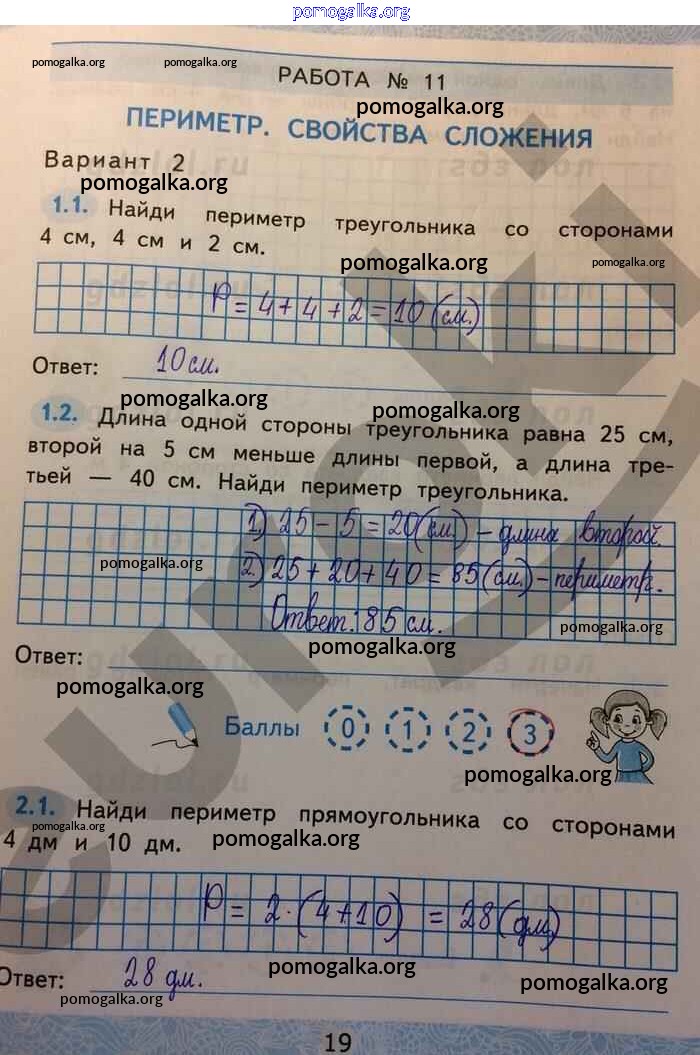 pomogalka.org
pomogalka.org pomogalka.org
РАБОТА № 11
pomogalka.org
ПЕРИМЕТР. СВОЙСТВА СЛОЖЕНИЯ
Вариант 2
pomogalka.org
1.1. Найди периметр треугольника со сторонами
4 см, 4 см и 2 см.
pomogalka.org pomogalka.org
P = 4 + 4 + 2 = 10 (см.)
Ответ: 10 см.
pomogalka.org pomogalka.org
1.2. Длина одной стороны треугольника равна 25 см,
второй на 5 см меньше длины первой, а длина тре-
тьей — 40 см. Найди периметр треугольника.
1) 25 - 5 = 20 (см.) - длина второй.
pomogalka.org
2) 25 + 20 + 40 = 85 (см.) - периметр.
Ответ: 85 см.
pomogalka.org
pomogalka.org
Ответ:
pomogalka.org
Баллы 0 1 2 3
pomogalka.org
2.1. Найди периметр прямоугольника со сторонами
pomogalka.org
4 дм и 10 дм.
pomogalka.org
P = 2 · (4 + 10) = 28 (дм.)
Ответ: 28 дм.
pomogalka.org
pomogalka.org
pomogalka.org
19
euroki